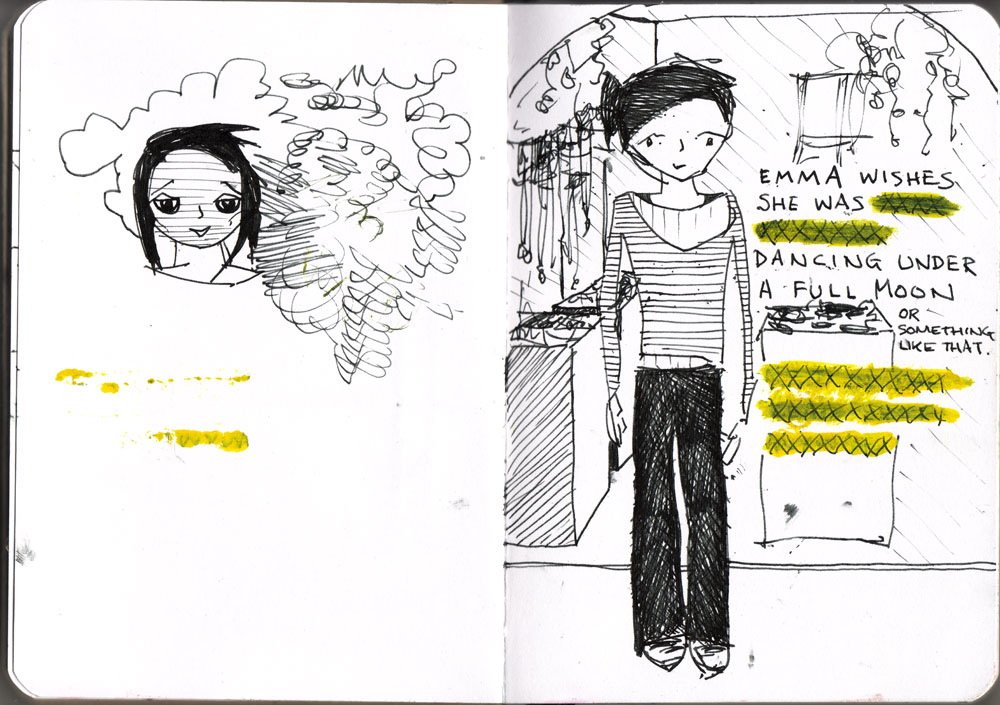 EMMA WISHES
SHE WAS
DANCING UNDER
A FULL MOON
OR
SOMETHING
LIKE THAT.